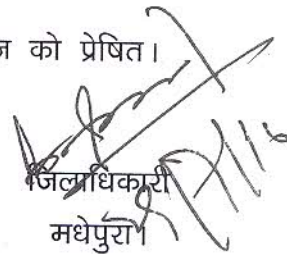 को प्रेषित।
जिलाधिकारी
मधेपुरा।